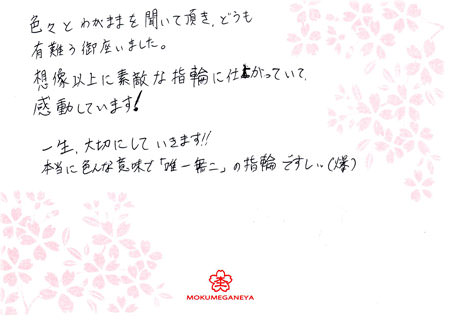 色々とわがままを聞いて頂き、どうも
有難う御座いました。
想像以上に素敵な指輪に仕上がっていて、
感動しています!
一生、大切にしていきます!!
本当に色んな意味で「唯一無二」の指輪ですし…(爆)
MOKUMEGANEYA